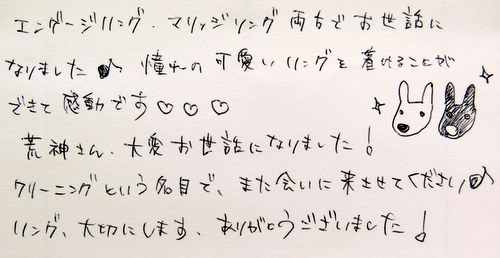 エンゲージリング、マリッジリング両方でお世話に
なりました♪ 憧れの可愛いリングを着けることが
できて感動です♡♡♡
荒神さん、大変お世話になりました!
クリーニングという名目で、また会いに来させてください♪
リング、大切にします。ありがとうございました!